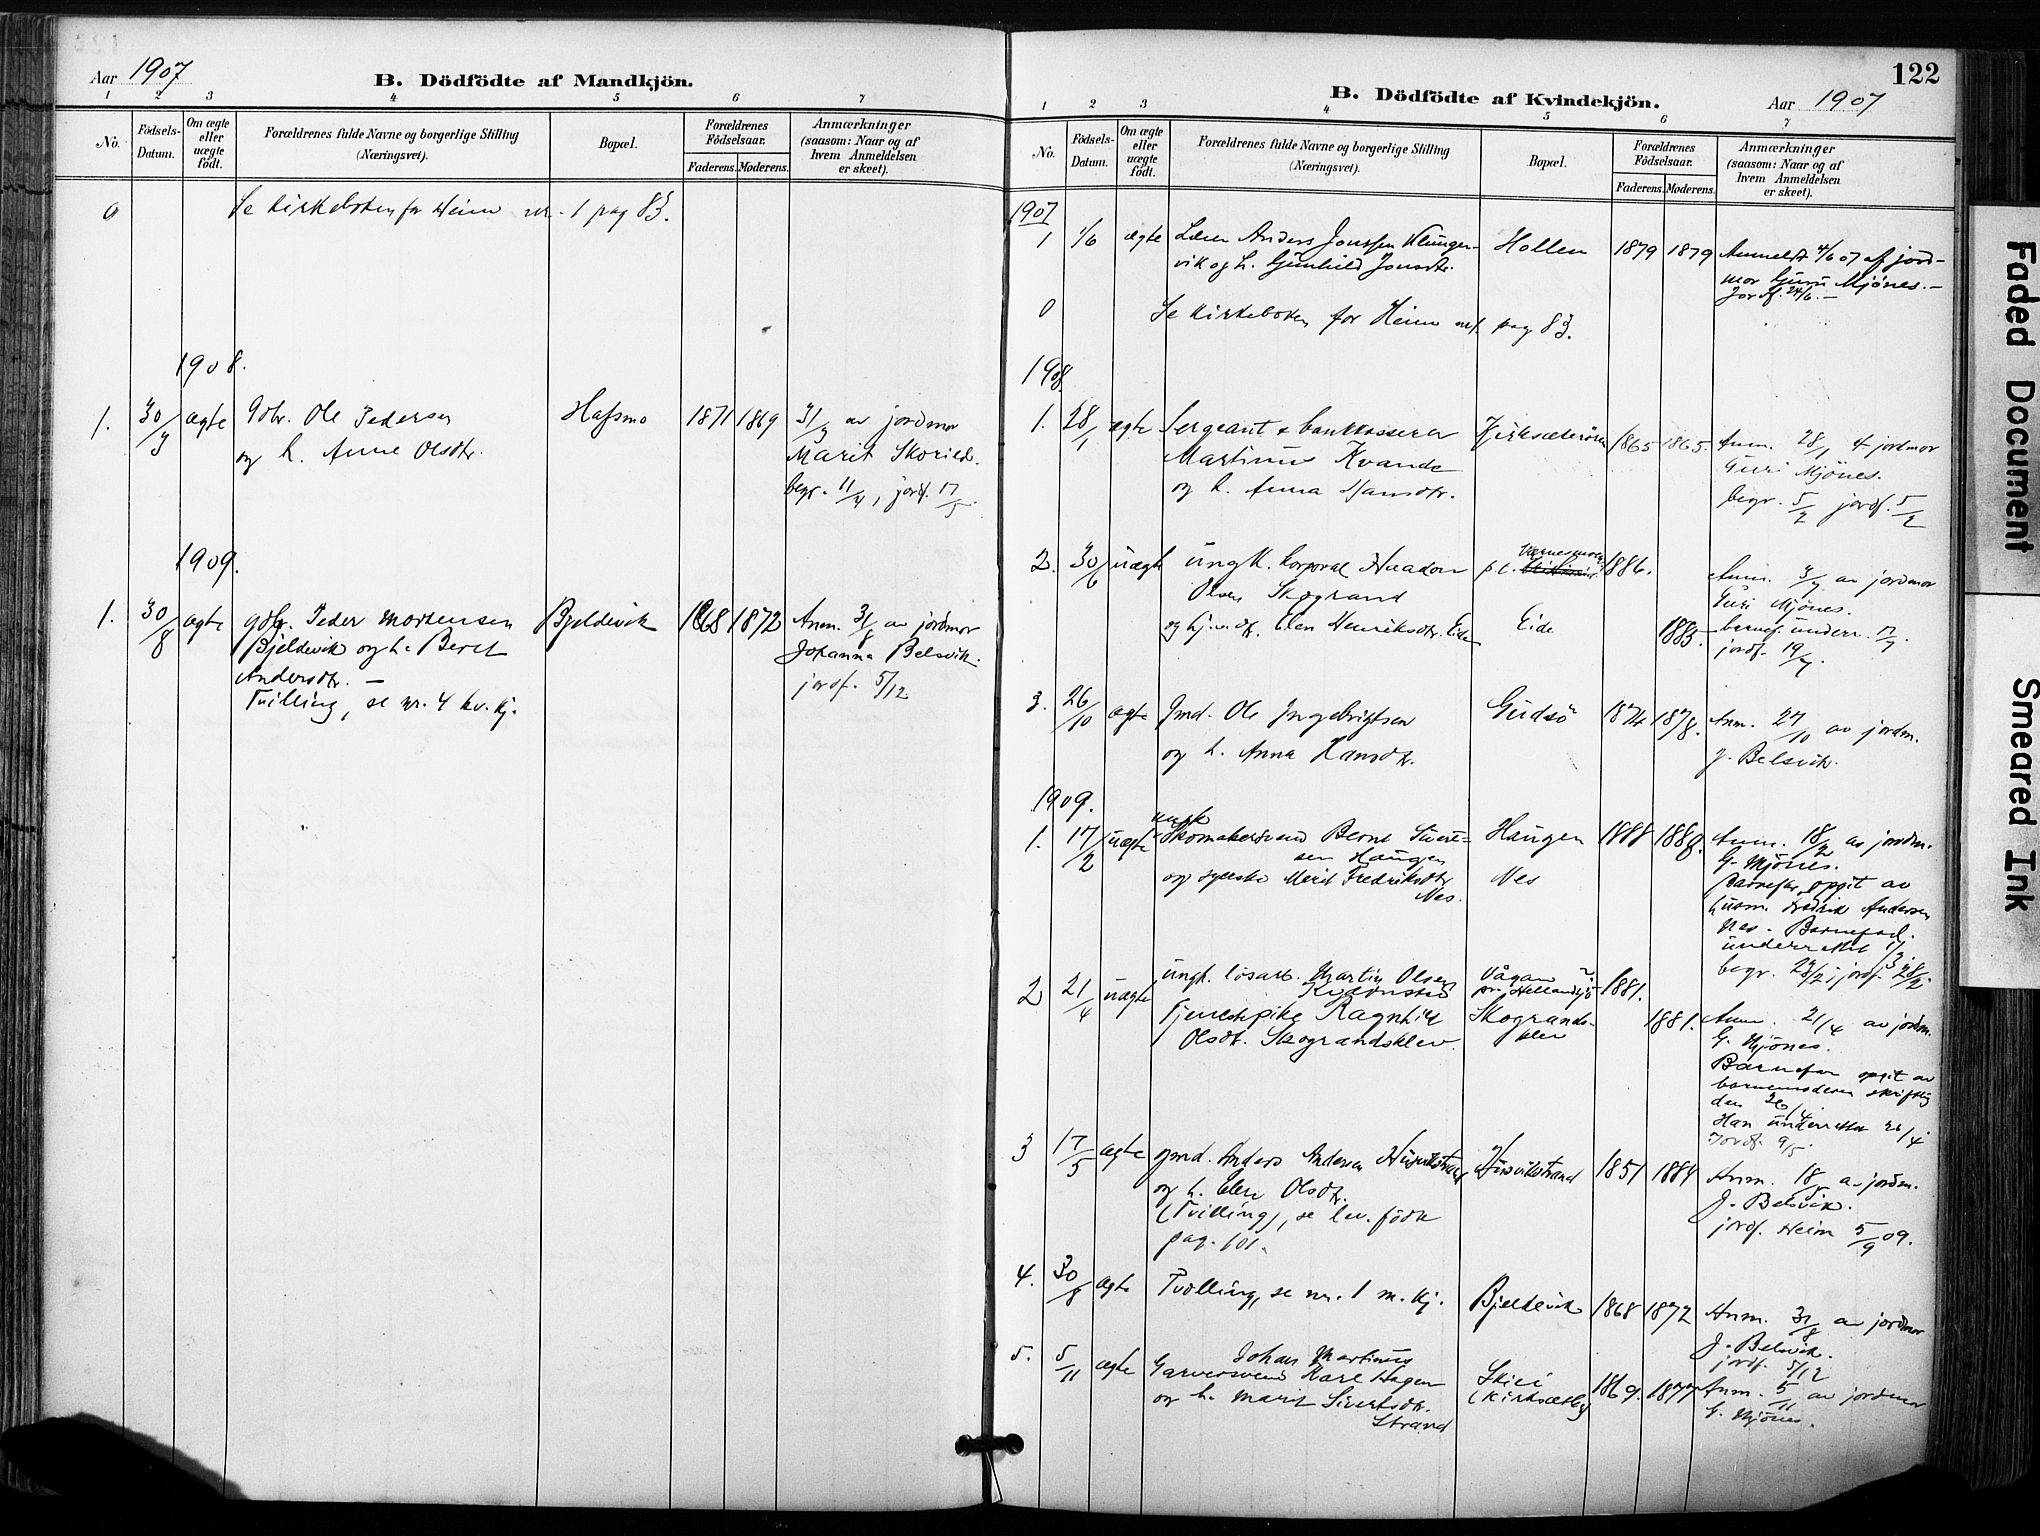 Aar 1907
B. Dödfödte af Mandkjön.
1 2 3 4 5 6 7
No.
Födsels-
Datum.
Om ægte
eller
uægte
født.
Forældrenes fulde Navne og borgerlige Stilling
(Næringsvei).
Bopæl.
Forældrenes
Födselsaar.
Faderens. Moderens.
Anmærkninger
(saasom: Naar og af
hvem Anmeldelsen
er skeet).
0 Se kirkeboken for Heim nr. 1 pag 83.
1908.
1. 30/3 ægte Gbr. Ole Pedersen Hafsmo 1871 1869 31/3 av jordmor
og h. Anne Olsdtr. Marit Skorild.
begr. 11/4, jordf. 17/5.
1909.
1. 30/8 ægte gbr. Peder Mortensen Bjeldevik 1868 1872 Anm. 31/8 av jordmor
Bjeldevik og h. Beret Johanna Belsvik.
Andersdtr. — jordf. 5/12
Tvilling, se nr. 4 kv. kj.
122
B. Dödfödte af Kvindekjön.
Aar 1907
1 2 3 4 5 6 7
No.
Födsels-
Datum.
Om ægte
eller
uægte
födt.
Forældrenes fulde Navne og borgerlige Stilling
(Næringsvei).
Bopæl.
Forældrenes
Födselsaar.
Faderens. Moderens.
Anmærkninger
(saasom: Naar og af
hvem Anmeldelsen
er skeet).
1907
1 1/6 ægte Lærer Anders Jonssen Klunger- Hollen 1879 1879 Anmeldt 4/6 07 af jord-
vik og h. Gunhild Jonsdtr. mor Guru Mjönes.—
Jordf. 24/6.—
0 Se kirkeboken for Heim nr 1 pag 83.
1908
1. 28/1 ægte Sergeant & bankkasserer Kirksæterören 1865 1865. Anm. 28/1 af jordmor
Martinus Kvande Guri Mjönes.
og h. Anna Hansdtr. begr. 5/2 jordf. 5/2
2. 30/6 uægte ungk. korporal Haakon p.t. Værnesmoen 1886. Anm. 3/7 av jordmor
Olsen Skogrand Guri Mjönes.
og Elen Henriksdtr. Eide Eide 1885. barnef. underr. 17/7.
jordf. 19/7.
3. 26/10 ægte Gmd. Ole Ingebrigtsen Gudsö 1874 1878. Anm. 27/10 av jordm.
og h. Anna Hansdtr. J. Belsvik.
1909.
ungk
1. 17/2 uægte Skomakersvend Bernt Siverts- Haugen 1888 1888. Anm. 18/2 av jordm.
sen Haugen G. Mjönes.
og syerske Merit Fredriksdtr. Nes Barnefar opgit av
Nes. husm. Fredrik Andersen
Nes. Barnefad.
underrettet 1/3
begr. 28/2; jordf. 28/2.
2 21/4 uægte ungk. lösarb. Martin Olsen Vågan 1881.
Kvernstad pr. Hellandsjö
Tjenestepike Ragnhild Skogrands- 1881. Anm. 21/4 av jordm.
Olsdtr. Skograndsklev. klev G. Mjönes.
Barnefar opgit av
barnemoderen skriftlig
den 26/4.
Han underrettet 26/4
Jordf. 9/5.
3 17/5 ægte gmd. Anders Andersen Husvikstrand Husvikstrand 1851 1884 Anm. 18/5 av jordm.
og h. Elen Olsdtr. J. Belsvik.
(Tvilling), se lev. födte jordf. Heim 5/9 09.
pag. 101.
4. 30/8 ægte Tvilling, se nr. 1 m. kj. Bjeldevik 1868 1872 Anm. 31/8 av jordmor
J. Belsvik.
jordf. 5/12
Johan Martinus
5. 5/11 ægte Garversvend Karl Hagen 1869. 1877 Anm. 5/11 av jordmor
og h. Marit Sivertsdtr. (Kirksæter) G. Mjönes.
Strand
Faded Document
Smeared Ink